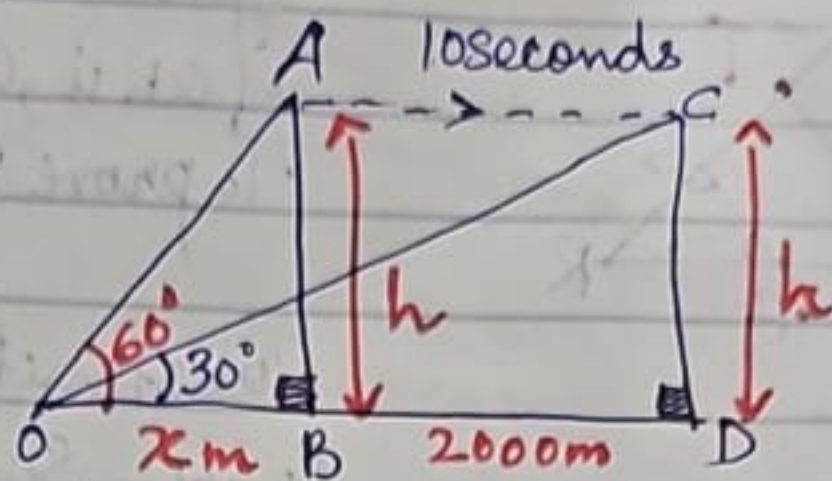 A 10seconds C
h h
60° 30°
O x m B 2000m D